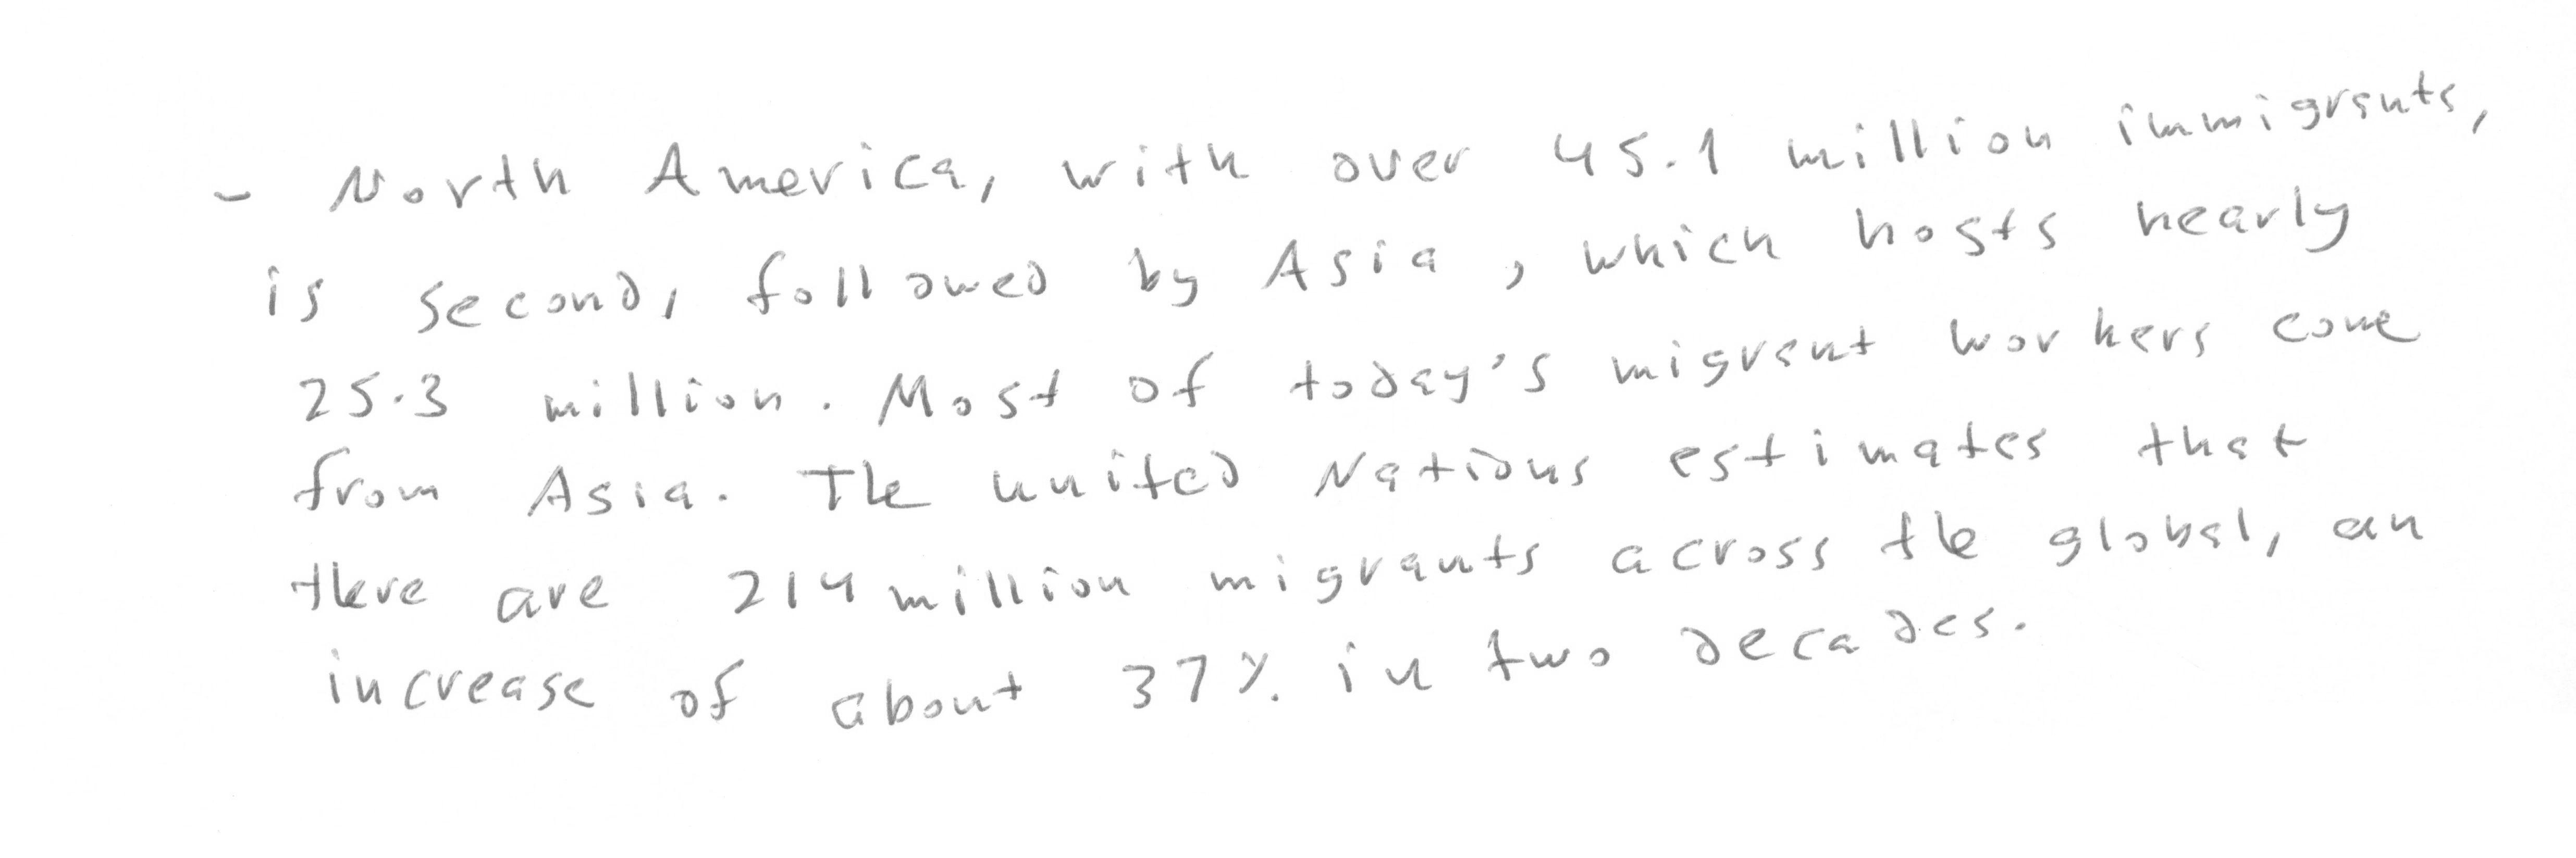 - North America, with over 45.1 million immigrants,
is second, followed by Asia, which hosts nearly
25.3 million. Most of today's migrant workers come
from Asia. The united Nations estimates that
there are 214 million migrants across the global, an
increase of about 37% in two decades.